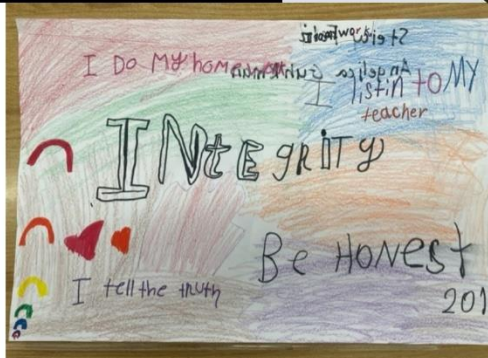 I Do My hom
I listin to My
teacher
INtEgRiTy
Be HoNest
I tell the truth
201